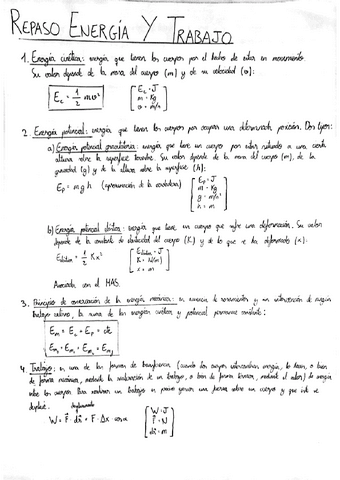 REPASO ENERGÍA Y TRABAJO
1. Energía cinética: energía que tienen los cuerpos por el hecho de estar en movimiento.
Su valor depende de la masa del cuerpo (m) y de su velocidad (v):
Ec = 1/2 mv² [Ec = J
m = Kg
v = m/s]
2. Energía potencial: energía que tienen los cuerpos por ocupar una determinada posición. Dos tipos:
a) Energía potencial gravitatoria: energía que tiene un cuerpo por estar situado a una cierta
altura sobre la superficie terrestre. Su valor depende de la masa del cuerpo (m), de la
gravedad (g) y de la altura sobre la superficie (h):
Ep = m g h (aproximación de la verdadera) [Ep = J
m = Kg
g = m/s²
h = m]
b) Energía potencial elástica: energía que tiene un cuerpo que sufre una deformación. Su valor
depende de la constante de elasticidad del cuerpo (K) y de lo que se ha deformado (x):
Eelástica = 1/2 Kx² [Eelástica = J
K = N/m
x = m]
Asociada con el MAS.
3. Principio de conservación de la energía mecánica: en ausencia de rozamientos y sin intervención de ningún
trabajo externo, la suma de las energías cinética y potencial permanece constante:
Em = Ec + Ep = cte
4. Trabajo: es una de las formas de transferencia (cuando los cuerpos intercambian energía, lo hacen, o bien
de forma mecánica, mediante la realización de un trabajo, o bien de forma térmica, mediante el calor) de energía
entre los cuerpos. Para realizar un trabajo es preciso ejercer una fuerza sobre un cuerpo y que este se
desplace.
W = F · dr = F · Δx · cos α [W = J
F = N
dr = m]